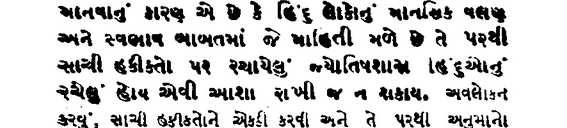 માનવાનું કારણ એ છે કે હિંદુ લોકોનું માનસિક વલણ
અને સ્વભાવ બાબતમાં જે માહિતી મળે છે તે પરથી
સાચી હકીકતો પર રચાયેલું જ્યોતિષશાસ્ત્ર હિંદુઓનું
રચેલું હોય એવી આશા રાખી જ ન શકાય. અવલોકન
કરવું, સાચી હકીકતોને એકઠી કરવી અને તે પરથી અનુમાનો